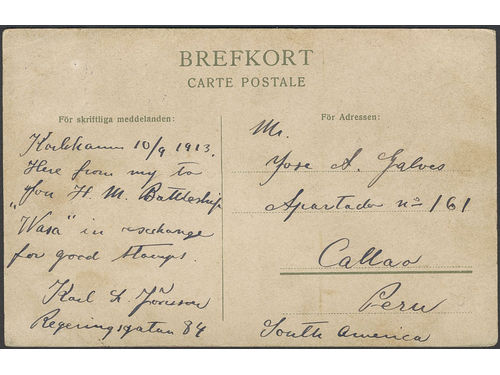 BREFKORT
CARTE POSTALE
För skriftliga meddelanden:
För Adressen:
Karlshamn 10/9 1913.
Here from my to
you H. M. Battleship
„Wasa" in exchange
for good stamps.
Karl L.
Regeringsgatan 84
Mr.
Jose A. Galves
Apartado no 161
Callao
Peru
South America